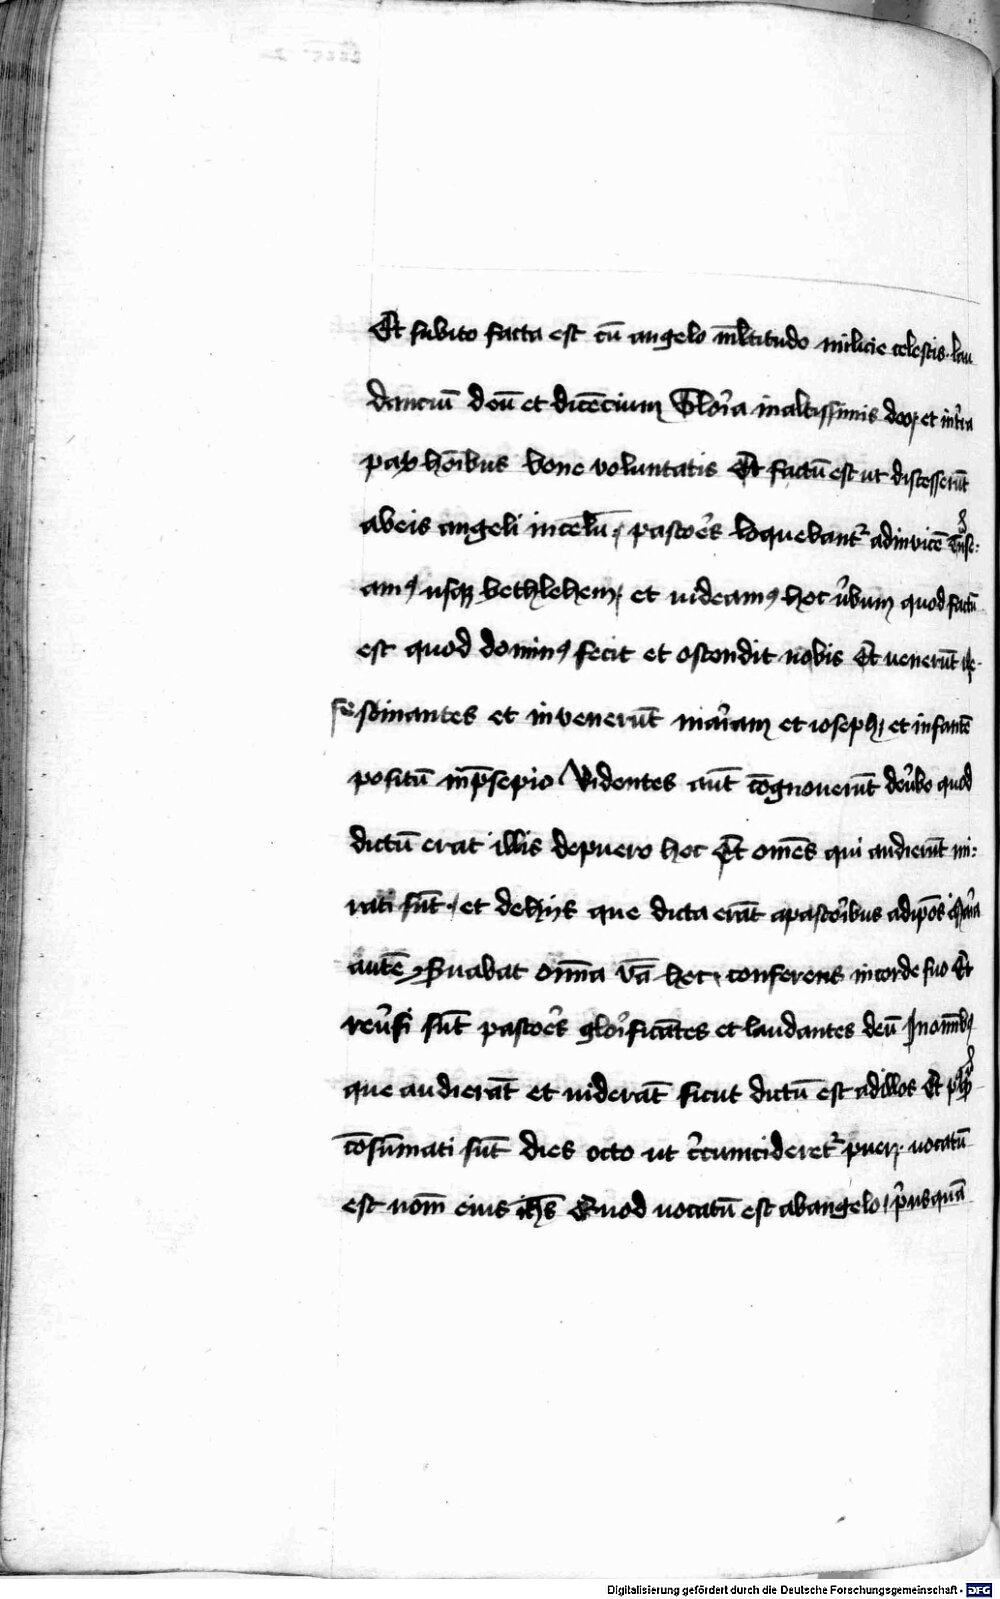 Et subito facta est cū angelo m̄ltitudo milicie celestis · lau
danciū deū et dicēcium Glor̉ia inaltissimis deo et int̉ra
pax hōibus bone voluntatis Et factū est ut discesserūt
abeis angeli incelū · pastoēs loquebant᷑ adinvicē
amꝰ usqꝫ bethlehem · et uideamꝰ hoc v̉bum quod factū
est quod dominꝰ fecit et ostendit nobis Et venerūt
festinantes et invenerūt mar̉iam et ioseph · et infantē
positū inp̄sepio Videntes aūt cōgnoverūt dev̉bo quod
dictū erat illis depuero hoc Et om̄es qui audierūt mi:
rati sūt · et dehijs que dicta erāt apastor̉ibus adip̄os Mar̉ia
autē ꝯs̉uabat om̄ia v̄a hec · conferens incorde suo Et
rev̉si sūt pastoēs glor̉ificātes et laudantes deū Inom̄ibꝰ
que audierāt et uiderāt sicut dictū est adillos Et pꝰqꝫ
cōsūmati sūt dies octo ut c̉cumcideret᷑ puer · vocatū
est nom̄ eius ih̄s Quod uocatū est abangelo · p̉usquā
Digitalisierung gefördert durch die Deutsche Forschungsgemeinschaft - DFG